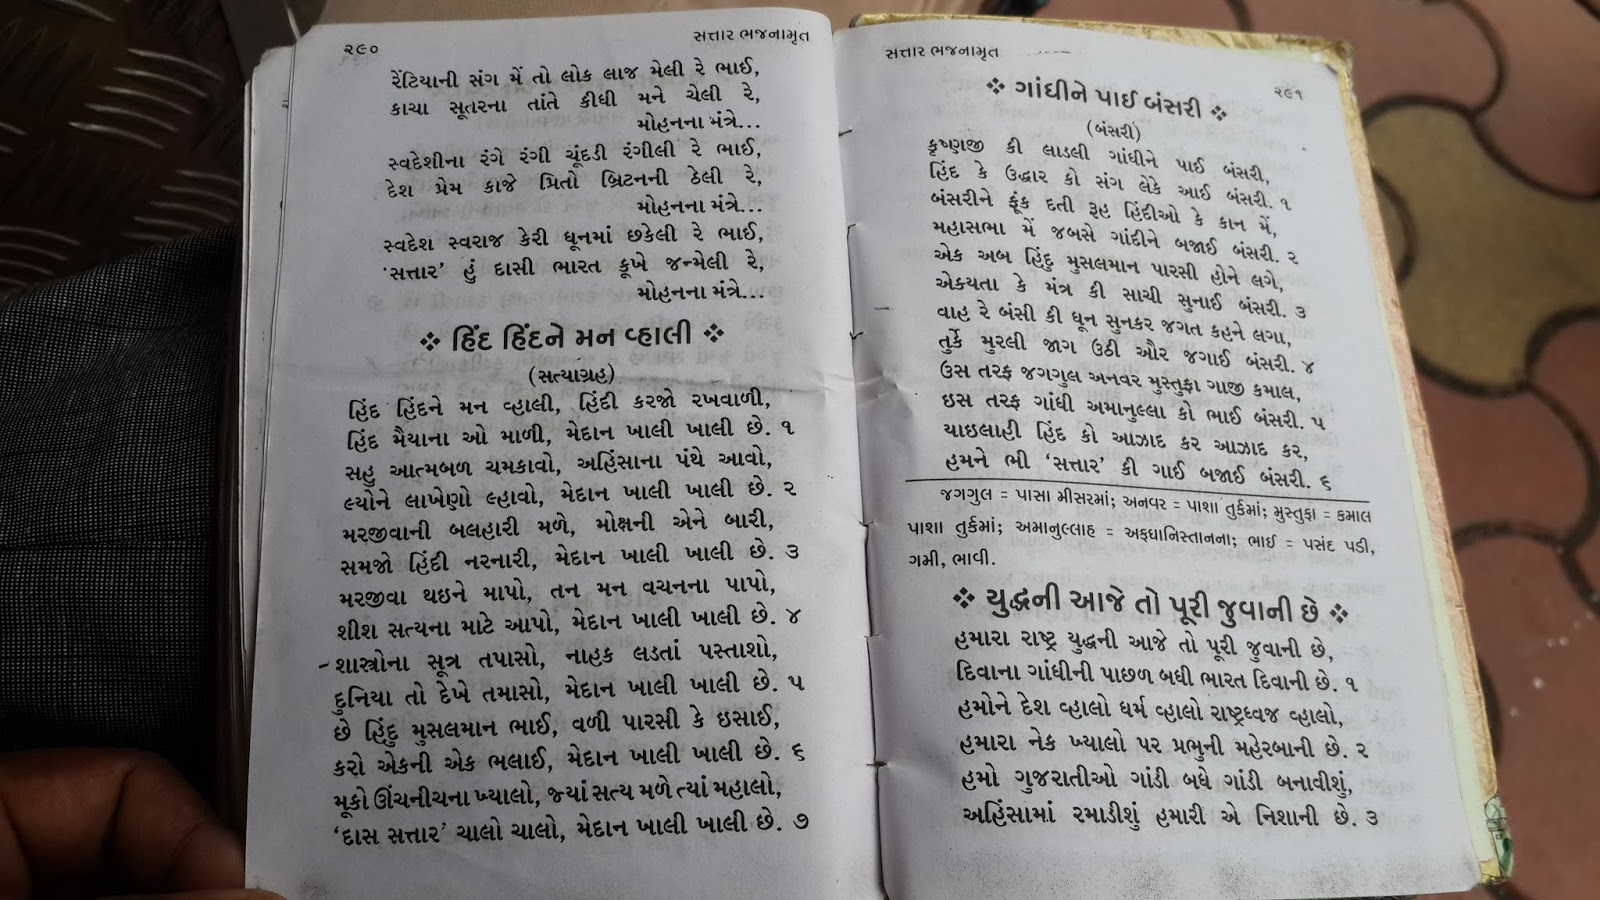 ૨૯૦
સત્તાર ભજનામૃત
રેંટિયાની સંગ મેં તો લોક લાજ મેલી રે ભાઈ,
કાચા સૂતરના તાંતે કીધી મને ચેલી રે,
મોહનના મંત્રે...
સ્વદેશીના રંગે રંગી ચૂંદડી રંગીલી રે ભાઈ,
દેશ પ્રેમ કાજે પ્રિતો બ્રિટનની ઠેલી રે,
મોહનના મંત્રે...
સ્વદેશ સ્વરાજ કેરી ધૂનમાં છકેલી રે ભાઈ,
‘સત્તાર’ હું દાસી ભારત કૂખે જન્મેલી રે,
મોહનના મંત્રે...
❖ હિંદ હિંદને મન વ્હાલી ❖
(સત્યાગ્રહ)
હિંદ હિંદને મન વ્હાલી, હિંદી કરજો રખવાળી,
હિંદ મૈયાના ઓ માળી, મેદાન ખાલી ખાલી છે. ૧
સહુ આત્મબળ ચમકાવો, અહિંસાના પંથે આવો,
લ્યોને લાખેણો લ્હાવો, મેદાન ખાલી ખાલી છે. ૨
મરજીવાની બલહારી મળે, મોક્ષની એને બારી,
સમજો હિંદી નરનારી, મેદાન ખાલી ખાલી છે. ૩
મરજીવા થઇને માપો, તન મન વચનના પાપો,
શીશ સત્યના માટે આપો, મેદાન ખાલી ખાલી છે. ૪
શાસ્ત્રોના સૂત્ર તપાસો, નાહક લડતાં પસ્તાશો,
દુનિયા તો દેખે તમાસો, મેદાન ખાલી ખાલી છે. ૫
છે હિંદુ મુસલમાન ભાઈ, વળી પારસી કે ઇસાઈ,
કરો એકની એક ભલાઈ, મેદાન ખાલી ખાલી છે. ૬
મૂકો ઊંચનીચના ખ્યાલો, જ્યાં સત્ય મળે ત્યાં મહાલો,
‘દાસ સત્તાર’ ચાલો ચાલો, મેદાન ખાલી ખાલી છે. ૭
સત્તાર ભજનામૃત
૨૯૧
❖ ગાંધીને પાઈ બંસરી ❖
(બંસરી)
કૃષ્ણજી કી લાડલી ગાંધીને પાઈ બંસરી,
હિંદ કે ઉદ્ધાર કો સંગ લેકે આઈ બંસરી. ૧
બંસરીને ફૂંક દતી રૂહ હિંદીઓ કે કાન મેં,
મહાસભા મેં જબસે ગાંદીને બજાઈ બંસરી. ૨
એક અબ હિંદુ મુસલમાન પારસી હોને લગે,
એક્યતા કે મંત્ર કી સાચી સુનાઈ બંસરી. ૩
વાહ રે બંસી કી ધૂન સુનકર જગત કહને લગા,
તુર્કે મુરલી જાગ ઉઠી ઔર જગાઈ બંસરી. ૪
ઉસ તરફ જગગુલ અનવર મુસ્તુફા ગાજી કમાલ,
ઇસ તરફ ગાંધી અમાનુલ્લા કો ભાઈ બંસરી. ૫
યાઇલાહી હિંદ કો આઝાદ કર આઝાદ કર,
હમને ભી ‘સત્તાર’ કી ગાઈ બજાઈ બંસરી. ૬
જગગુલ = પાસા મીસરમાં; અનવર = પાશા તુર્કમાં; મુસ્તુફા = કમાલ
પાશા તુર્કમાં; અમાનુલ્લાહ = અફઘાનિસ્તાનના; ભાઈ = પસંદ પડી,
ગમી, ભાવી.
❖ યુદ્ધની આજે તો પૂરી જુવાની છે ❖
હમારા રાષ્ટ્ર યુદ્ધની આજે તો પૂરી જુવાની છે,
દિવાના ગાંધીની પાછળ બધી ભારત દિવાની છે. ૧
હમોને દેશ વ્હાલો ધર્મ વ્હાલો રાષ્ટ્રધ્વજ વ્હાલો,
હમારા નેક ખ્યાલો પર પ્રભુની મહેરબાની છે. ૨
હમો ગુજરાતીઓ ગાંડી બધે ગાંડી બનાવીશું,
અહિંસામાં રમાડીશું હમારી એ નિશાની છે. ૩